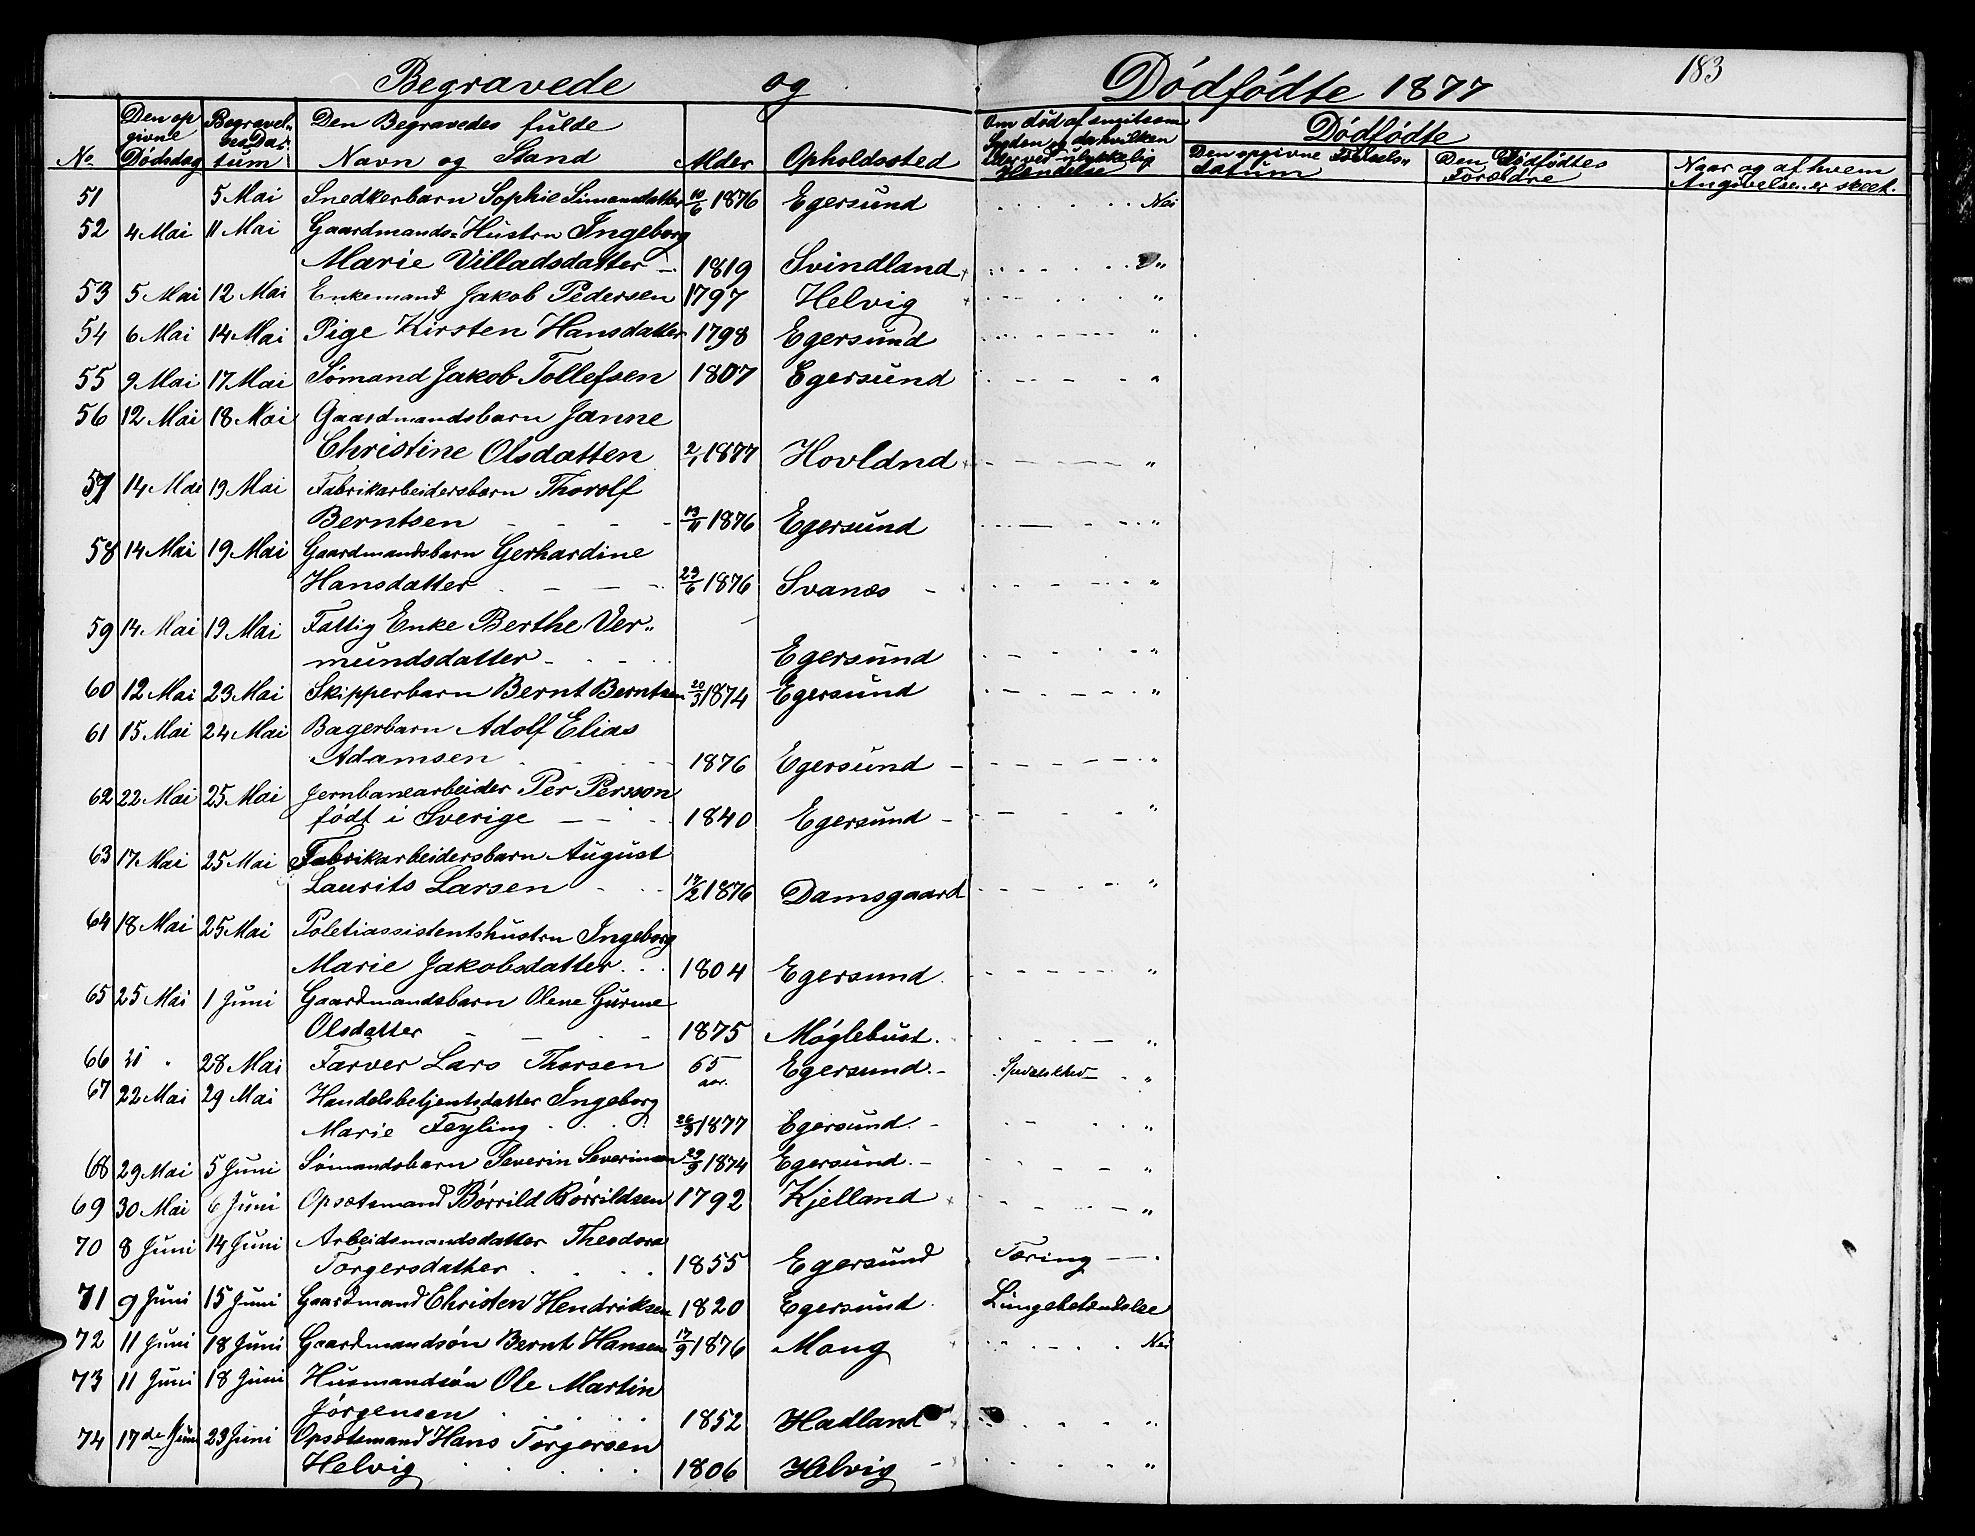 Begravede og Dødfødte 1877 183
No. Den opgivne Dødsdag Begravelsens Datum Den Begravedes fulde Navn og Stand Alder Opholdssted Om død af smitsom Sygdom og da hvilken eller ved ulykkelig Hendelse Dødfødte Den opgivne Fødselsdatum Den Dødfødtes Forældre Naar og af hvem Angivelsen er skeet.
51 5 Mai Snedkerbarn Sophie Simonsdatter 10/6 1876 Egersund Nei
52 4 Mai 11 Mai Gaardmands-Hustru Ingeborg
Marie Villadsdatter 1819 Svindland "
53 5 Mai 12 Mai Enkemand Jakob Pedersen 1797 Helvig "
54 6 Mai 14 Mai Pige Kirsten Hansdatter 1798 Egersund "
55 9 Mai 17 Mai Sømand Jakob Tollefsen 1807 Egersund "
56 12 Mai 18 Mai Gaardmandsbarn Janne
Christine Olsdatten 2/1 1877 Hovldnd "
57 14 Mai 19 Mai Fabrikarbeidersbarn Thorolf
Berntsen 13/11 1876 Egersund "
58 14 Mai 19 Mai Gaardmandsbarn Gerhardine
Hansdatter 29/6 1876 Svanæs "
59 14 Mai 19 Mai Fattig Enke Berthe Ver„
mundsdatter Egersund "
60 12 Mai 23 Mai Skipperbarn Bernt Berntsen 20/3 1874 Egersund "
61 15 Mai 24 Mai Bagerbarn Adolf Elias
Adamsen 1876 Egersund "
62 22 Mai 25 Mai Jernbanearbeider Per Persson
født i Sverige 1840 Egersund "
63 17 Mai 25 Mai Fabrikarbeidersbarn August
Laurits Larsen 17/2 1876 Damsgaard "
64 18 Mai 25 Mai Poletiassistentshustru Ingeborg
Marie Jakobsdatter 1804 Egersund "
65 25 Mai 1 Juni Gaardmandsbarn Olene Gurine
Olsdatter 1875 Møglebust "
66 28 Mai Farver Lars Thorsen 65 aar. Egersund Spedalskhed "
67 22 Mai 29 Mai Handelsbetjentsdatter Ingeborg
Marie Feyling 26/3 1877 Egersund "
68 29 Mai 5 Juni Sømandsbarn Severin Severinsen 29/9 1874 Egersund "
69 30 Mai 6 Juni Opsætsmand Børrild Børrildsen 1792 Kjelland "
70 8 Juni 14 Juni Arbeidsmandsdatter Theodora
Torgersdatter 1855 Egersund Tæring
71 9 Juni 15 Juni Gaardmand Christen Hendriksen 1820 Egersund Lungebetendelse
72 11 Juni 18 Juni Gaardmandsøn Bernt Hansen 17/9 1876 Mong Nei
73 11 Juni 18 Juni Husmandsøn Ole Martin
Jørgensen 1852 Hadland "
74 17de Juni 23 Juni Opsætsmand Hans Torgersen
Helvig 1806 Helvig "